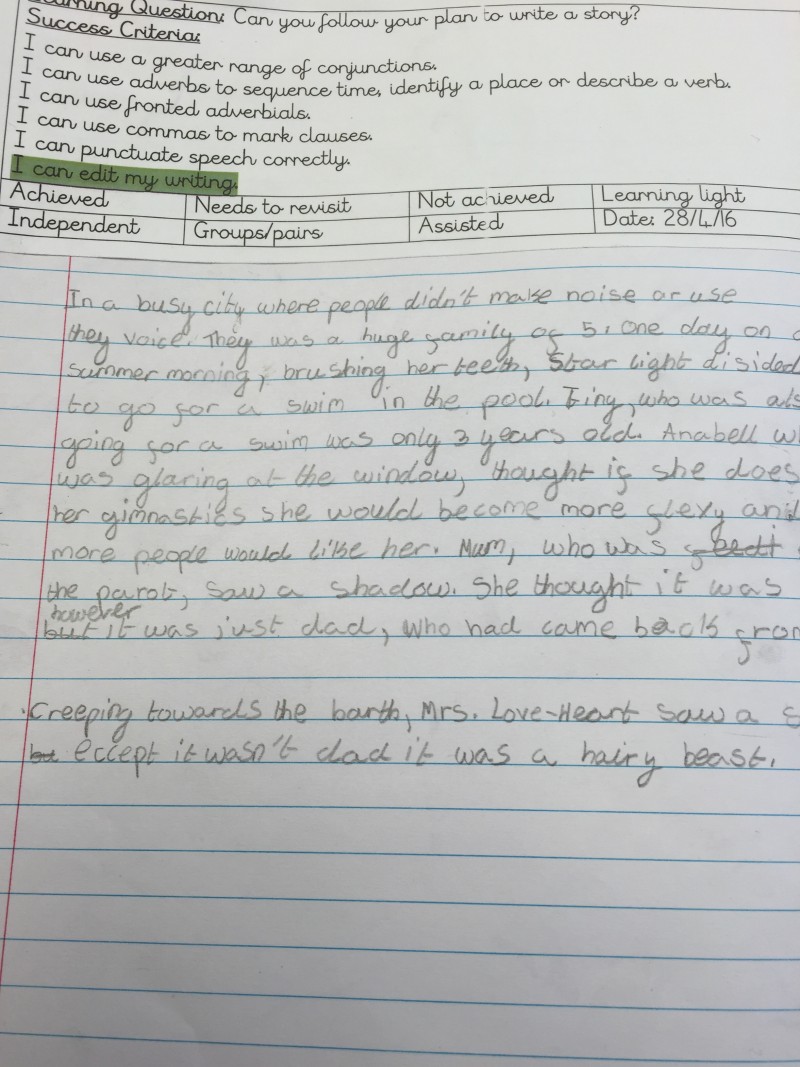 Learning Question: Can you follow your plan to write a story?
Success Criteria:
I can use a greater range of conjunctions.
I can use adverbs to sequence time, identify a place or describe a verb.
I can use fronted adverbials.
I can use commas to mark clauses.
I can punctuate speech correctly.
I can edit my writing.
Achieved Needs to revisit Not achieved Learning light
Independent Groups/pairs Assisted Date: 28/4/16
In a busy city where people didn't make noise or use
they voice. They was a huge family of 5. One day on
summer morning, brushing her teeth, Star light disided
to go for a swim in the pool. Tiny, who was
going for a swim was only 3 years old. Anabell
was glaring at the window, thought if she does
her gimnastics she would become more flexy and
more people would like her. Mum, who was
the parot, saw a shadow. She thought it was
however
but it was just dad, who had came back from
Creeping towards the barth, Mrs. Love-Heart saw a
but eccept it wasn't dad it was a hairy beast.